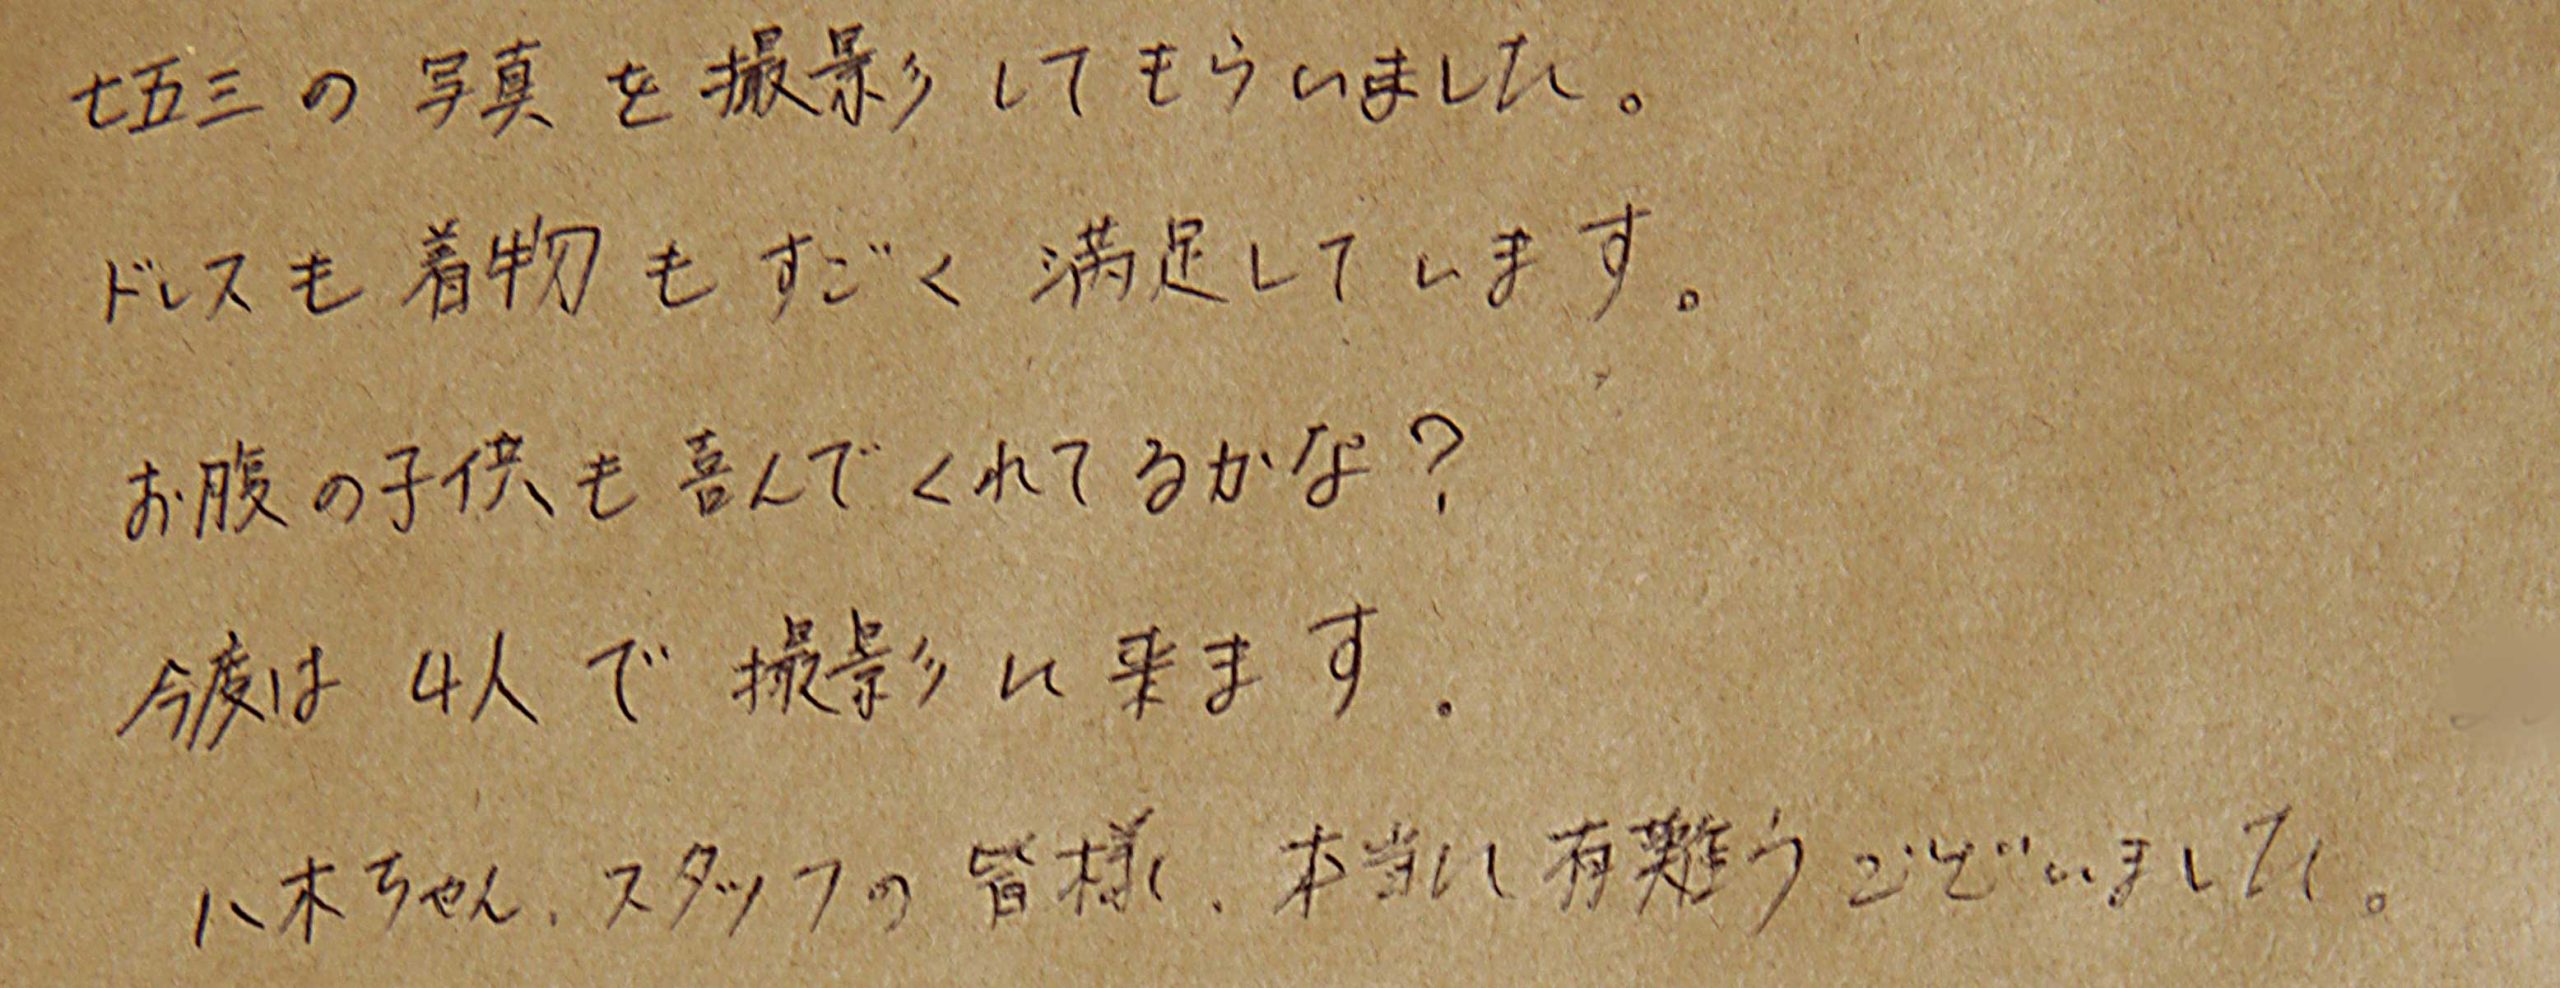 七五三の写真を撮影してもらいました。
ドレスも着物もすごく満足しています。
お腹の子供も喜んでくれてるかな?
今度は4人で撮影に来ます。
八木ちゃん、スタッフの皆様、本当に有難うございました。